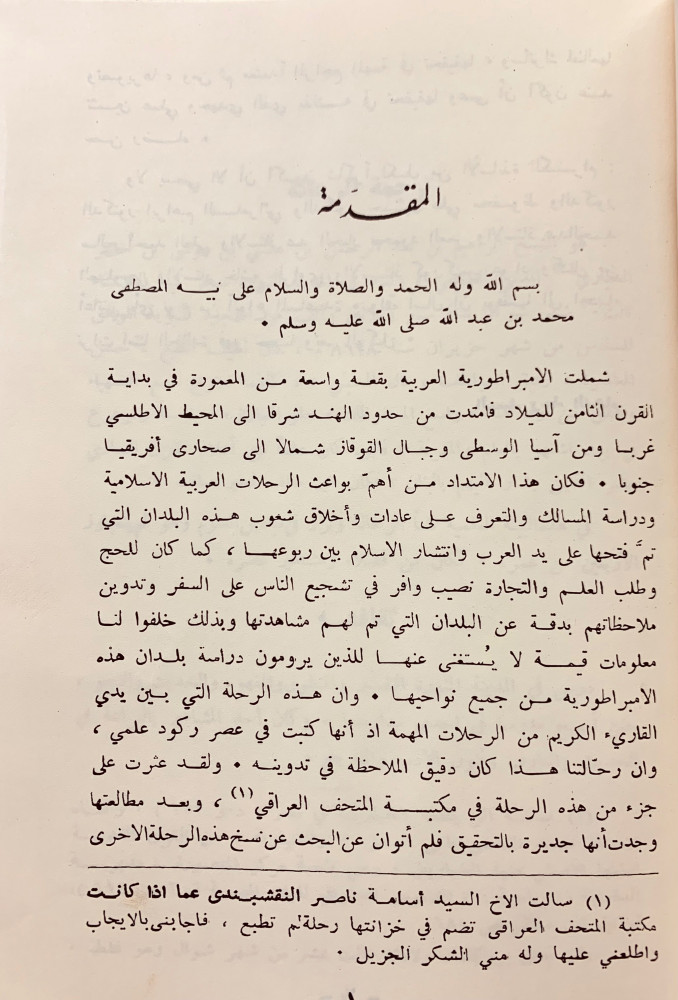 المقدمة
بسم الله وله الحمد والصلاة والسلام على نبيه المصطفى
محمد بن عبد الله صلى الله عليه وسلم .
شملت الامبراطورية العربية بقعة واسعة من المعمورة في بداية
القرن الثامن للميلاد فامتدت من حدود الهند شرقا الى المحيط الاطلسي
غربا ومن آسيا الوسطى وجبال القوقاز شمالا الى صحارى أفريقيا
جنوبا . فكان هذا الامتداد من أهمّ بواعث الرحلات العربية الاسلامية
ودراسة المسالك والتعرف على عادات وأخلاق شعوب هذه البلدان التي
تمَّ فتحها على يد العرب وانتشار الاسلام بين ربوعها ، كما كان للحج
وطلب العلم والتجارة نصيب وافر في تشجيع الناس على السفر وتدوين
ملاحظاتهم بدقة عن البلدان التي تم لهم مشاهدتها وبذلك خلفوا لنا
معلومات قيمة لا يُستغنى عنها للذين يرومون دراسة بلدان هذه
الامبراطورية من جميع نواحيها . وان هذه الرحلة التي بين يدي
القاريء الكريم من الرحلات المهمة اذ أنها كتبت في عصر ركود علمي ،
وان رحّالتنا هذا كان دقيق الملاحظة في تدوينه . ولقد عثرت على
جزء من هذه الرحلة في مكتبة المتحف العراقي(١) ، وبعد مطالعتها
وجدت أنها جديرة بالتحقيق فلم أتوان عن البحث عن نسخ هذه الرحلة الاخرى
(١) سالت الاخ السيد أسامة ناصر النقشبندى عما اذا كانت
مكتبة المتحف العراقى تضم في خزانتها رحلة لم تطبع ، فاجابنى بالايجاب
واطلعني عليها وله مني الشكر الجزيل .